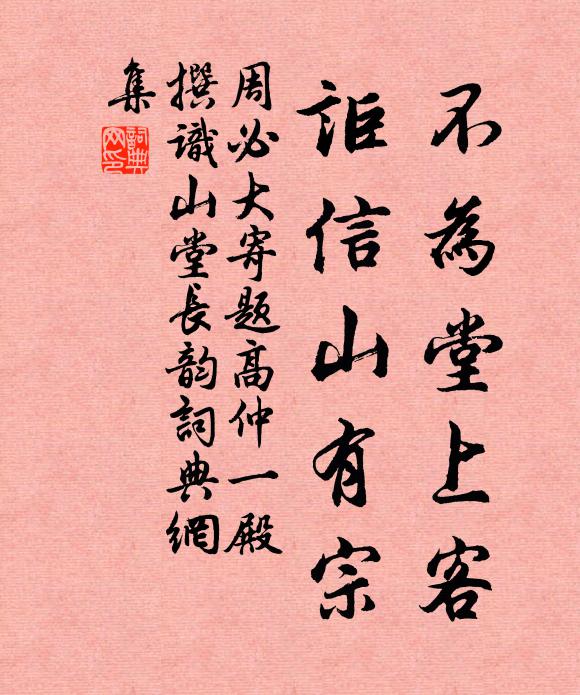 不為堂上客
詎信山有宗
周必大寄題高仲一殿
撰識山堂長韵詞典網
集
詞典網印